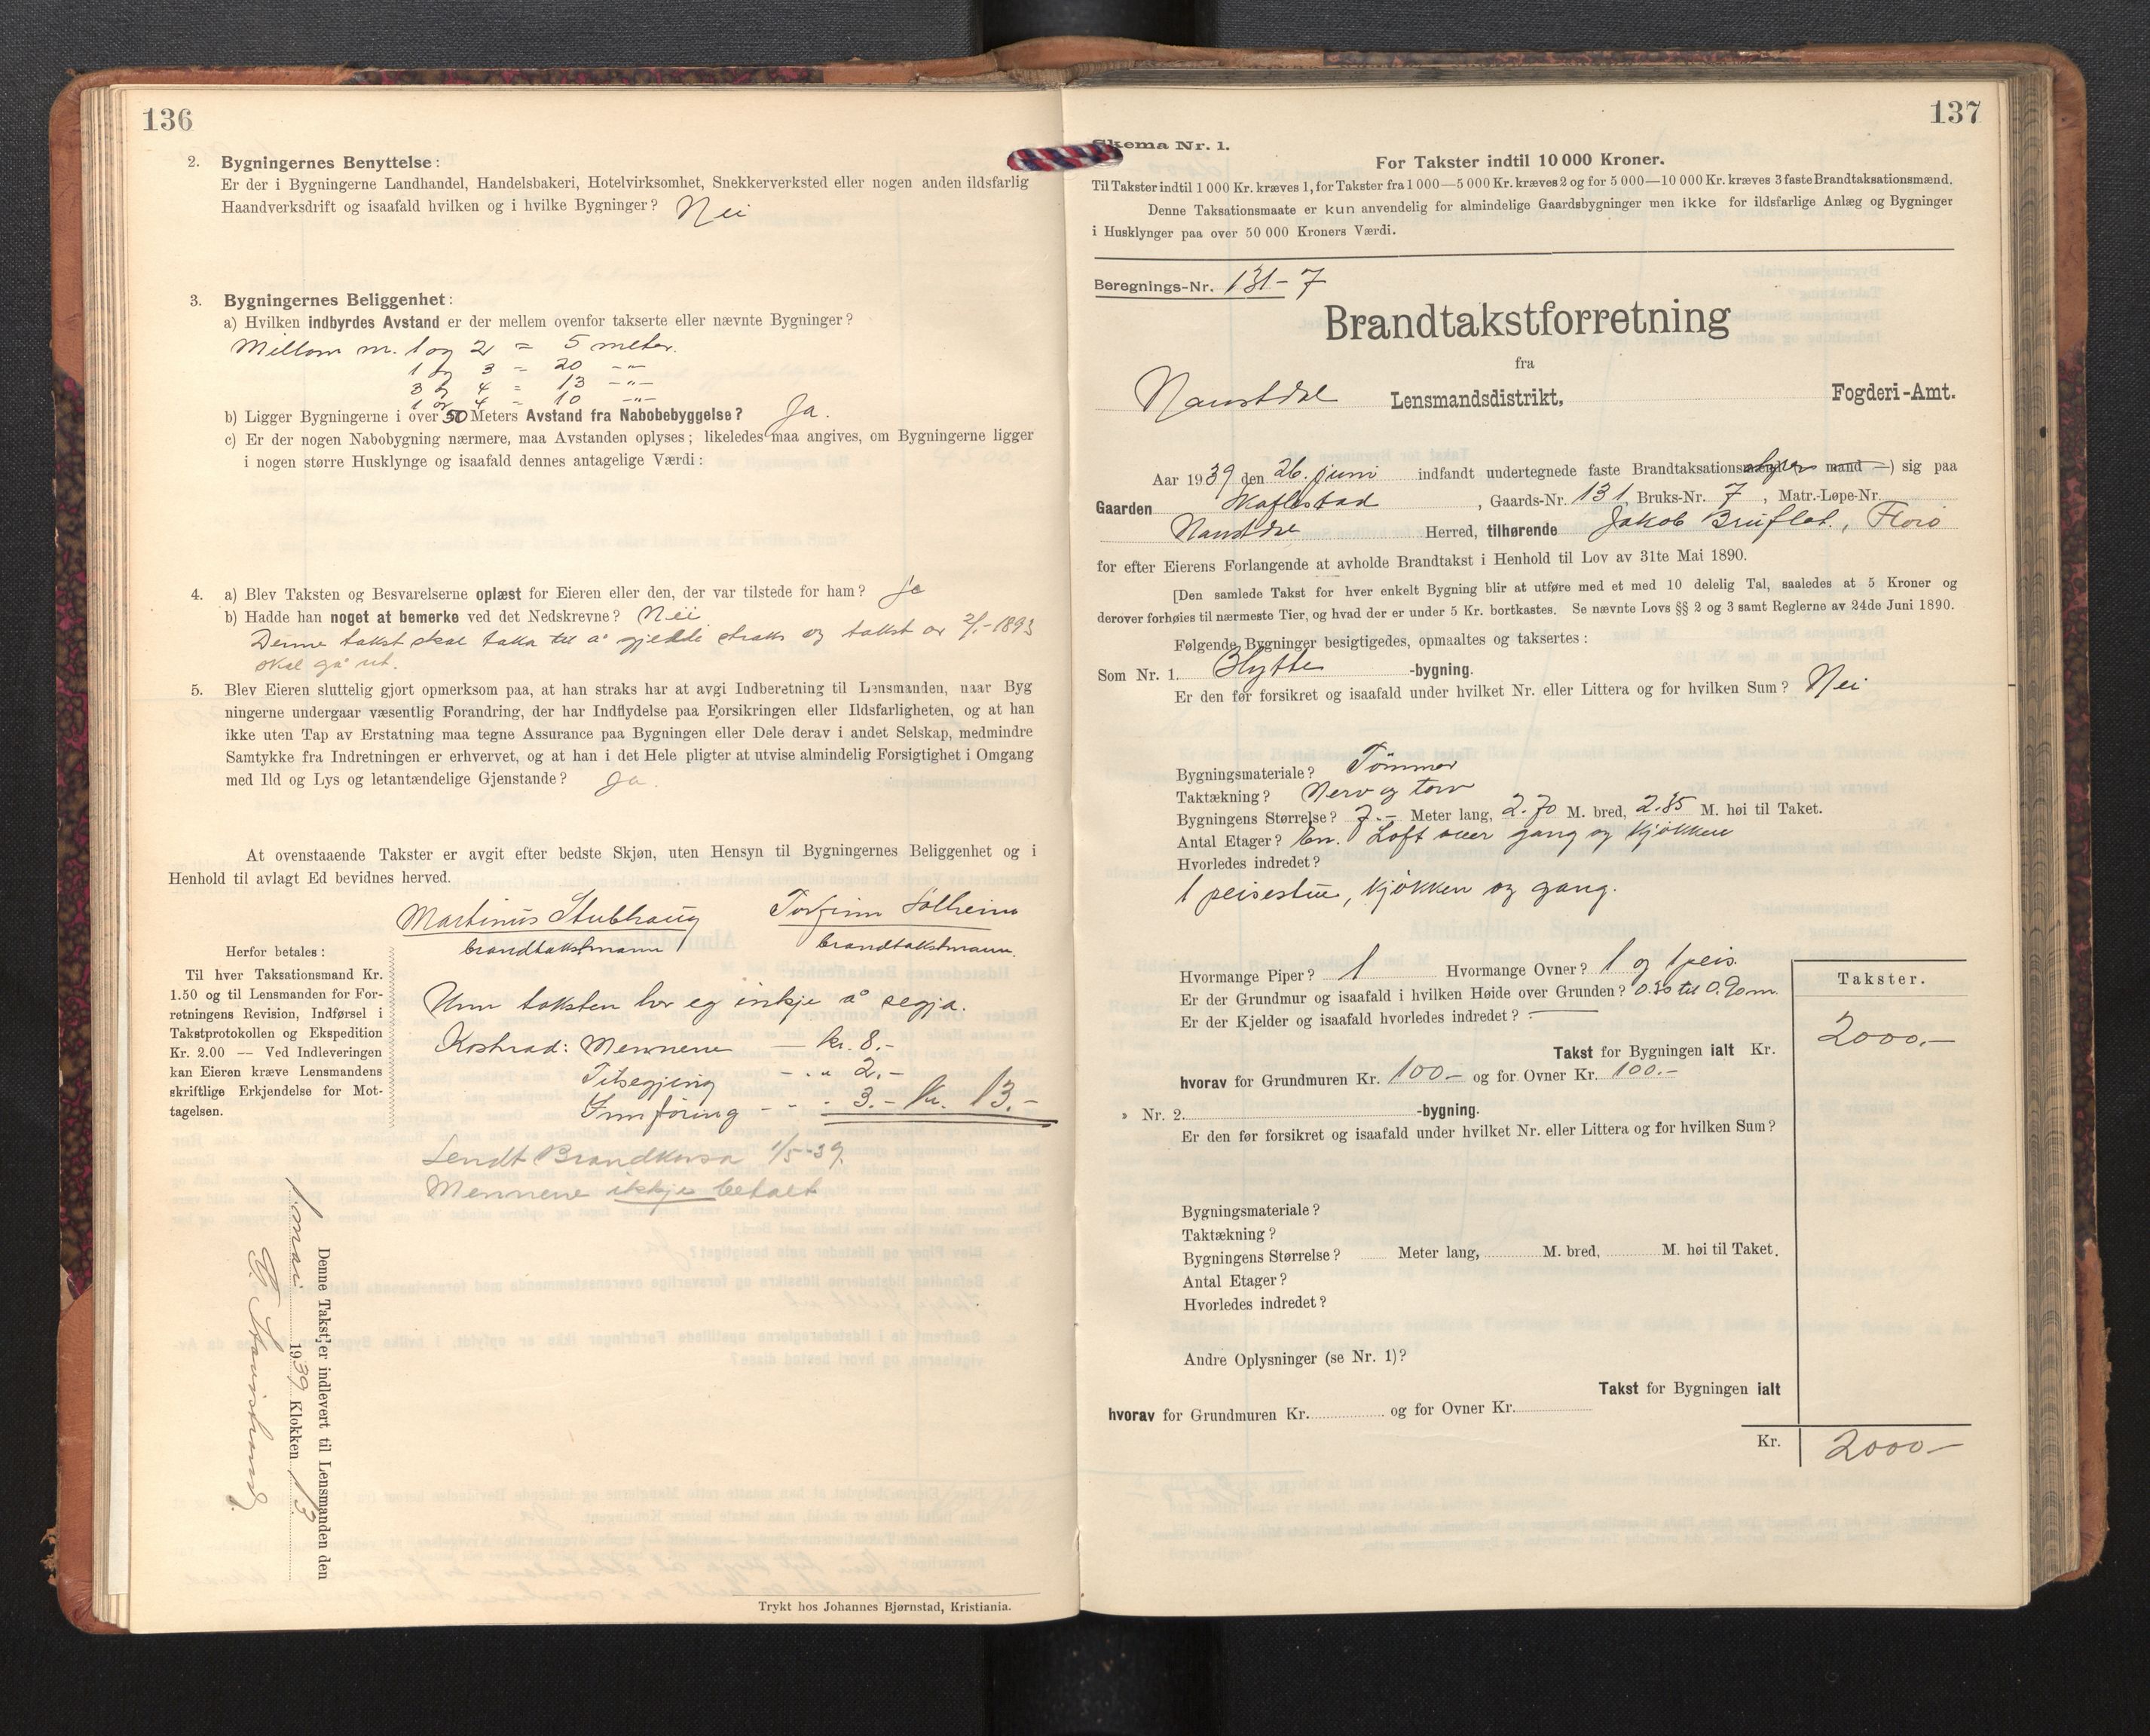 136
2. Bygningernes Benyttelse:
Er der i Bygningerne Landhandel, Handelsbakeri, Hotelvirksomhet, Snekkerverksted eller nogen anden ildsfarlig
Haandverksdrift og isaafald hvilken og i hvilke Bygninger? Nei
3. Bygningernes Beliggenhet:
a) Hvilken indbyrdes Avstand er der mellem ovenfor takserte eller nævnte Bygninger?
Millom nr. 1 og 2 = 5 meter.
1 og 3 = 20 -"-
3 og 4 = 13 -"-
1 og 4 = 10 -"-
b) Ligger Bygningerne i over 50 Meters Avstand fra Nabobebyggelse? Ja.
c) Er der nogen Nabobygning nærmere, maa Avstanden oplyses; likeledes maa angives, om Bygningerne ligger
i nogen større Husklynge og isaafald dennes antagelige Værdi:
4. a) Blev Taksten og Besvarelserne oplæst for Eieren eller den, der var tilstede for ham? Ja
b) Hadde han noget at bemerke ved det Nedskrevne? Nei
Denne takst skal taka til å gjelde straks og takst av 2/1-1893
skal gå ut.
5. Blev Eieren sluttelig gjort opmerksom paa, at han straks har at avgi Indberetning til Lensmanden, naar Byg
ningerne undergaar væsentlig Forandring, der har Indflydelse paa Forsikringen eller Ildsfarligheten, og at han
ikke uten Tap av Erstatning maa tegne Assurance paa Bygningen eller Dele derav i andet Selskap, medmindre
Samtykke fra Indretningen er erhvervet, og at han i det Hele pligter at utvise almindelig Forsigtighet i Omgang
med Ild og Lys og letantændelige Gjenstande? Ja.
At ovenstaaende Takster er avgit efter bedste Skjøn, uten Hensyn til Bygningernes Beliggenhet og i
Henhold til avlagt Ed bevidnes herved.
Martinus Stubhaug Torfinn Solheim
brandtakstmann brandtakstmann.
Herfor betales:
Til hver Taksationsmand Kr.
1.50 og til Lensmanden for For-
retningens Revision, Indførsel i
Takstprotokollen og Ekspedition
Kr. 2.00 — Ved Indleveringen
kan Eieren kræve Lensmandens
skriftlige Erkjendelse for Mot-
tagelsen.
Um taksten har eg inkje å segja.
Kostnad: Mennene — kr. 8.-
Tilsegjing - - " 2.-
Innføring - - - 3.- Kr. 13.-
Sendt Brandkassa 1/5-39.
Mennene ikkje betalt
Denne Takst er indlevert til Lensmanden den
1939 Klokken 13
137
Skema Nr. 1.
For Takster indtil 10 000 Kroner.
Til Takster indtil 1 000 Kr. kræves 1, for Takster fra 1 000—5 000 Kr. kræves 2 og for 5 000—10 000 Kr. kræves 3 faste Brandtaksationsmænd.
Denne Taksationsmaate er kun anvendelig for almindelige Gaardsbygninger men ikke for ildsfarlige Anlæg og Bygninger
i Husklynger paa over 50 000 Kroners Værdi.
Beregnings-Nr. 131-7
Brandtakstforretning
fra
Naustdal Lensmandsdistrikt, Fogderi-Amt.
Aar 1939 den 26. juni indfandt undertegnede faste Brandtaksations mand ) sig paa
Gaarden Skaflestad, Gaards-Nr. 131, Bruks-Nr. 7, Matr.-Løpe-Nr.
Naustdal Herred, tilhørende Jakob Bruflat, Florø
for efter Eierens Forlangende at avholde Brandtakst i Henhold til Lov av 31te Mai 1890.
[Den samlede Takst for hver enkelt Bygning blir at utføre med et med 10 delelig Tal, saaledes at 5 Kroner og
derover forhøies til nærmeste Tier, og hvad der er under 5 Kr. bortkastes. Se nævnte Lovs §§ 2 og 3 samt Reglerne av 24de Juni 1890.
Følgende Bygninger besigtigedes, opmaaltes og taksertes:
Som Nr. 1. Hytte -bygning.
Er den før forsikret og isaafald under hvilket Nr. eller Littera og for hvilken Sum? Nei
Bygningsmateriale? Tømmer
Taktækning? Nerv og torv
Bygningens Størrelse? 7.- Meter lang, 2.70 M. bred, 2.35 M. høi til Taket.
Antal Etager? En. Loft over gang og kjøkken
Hvorledes indredet?
1 peisestue, kjøkken og gang.
Hvormange Piper? 1 Hvormange Ovner? 1 og 1 peis.
Er der Grundmur og isaafald i hvilken Høide over Grunden? 0.30 til 0.90 m.
Er der Kjelder og isaafald hvorledes indredet? —
Takster.
Takst for Bygningen ialt Kr. 2000.-
hvorav for Grundmuren Kr. 100- og for Ovner Kr. 100.-
» Nr. 2. -bygning.
Er den før forsikret og isaafald under hvilket Nr. eller Littera og for hvilken Sum?
Bygningsmateriale?
Taktækning?
Bygningens Størrelse? Meter lang, M. bred, M. høi til Taket.
Antal Etager?
Hvorledes indredet?
Andre Oplysninger (se Nr. 1)?
Takst for Bygningen ialt
hvorav for Grundmuren Kr. og for Ovner Kr.
Kr. 2000-
Trykt hos Johannes Bjørnstad, Kristiania.